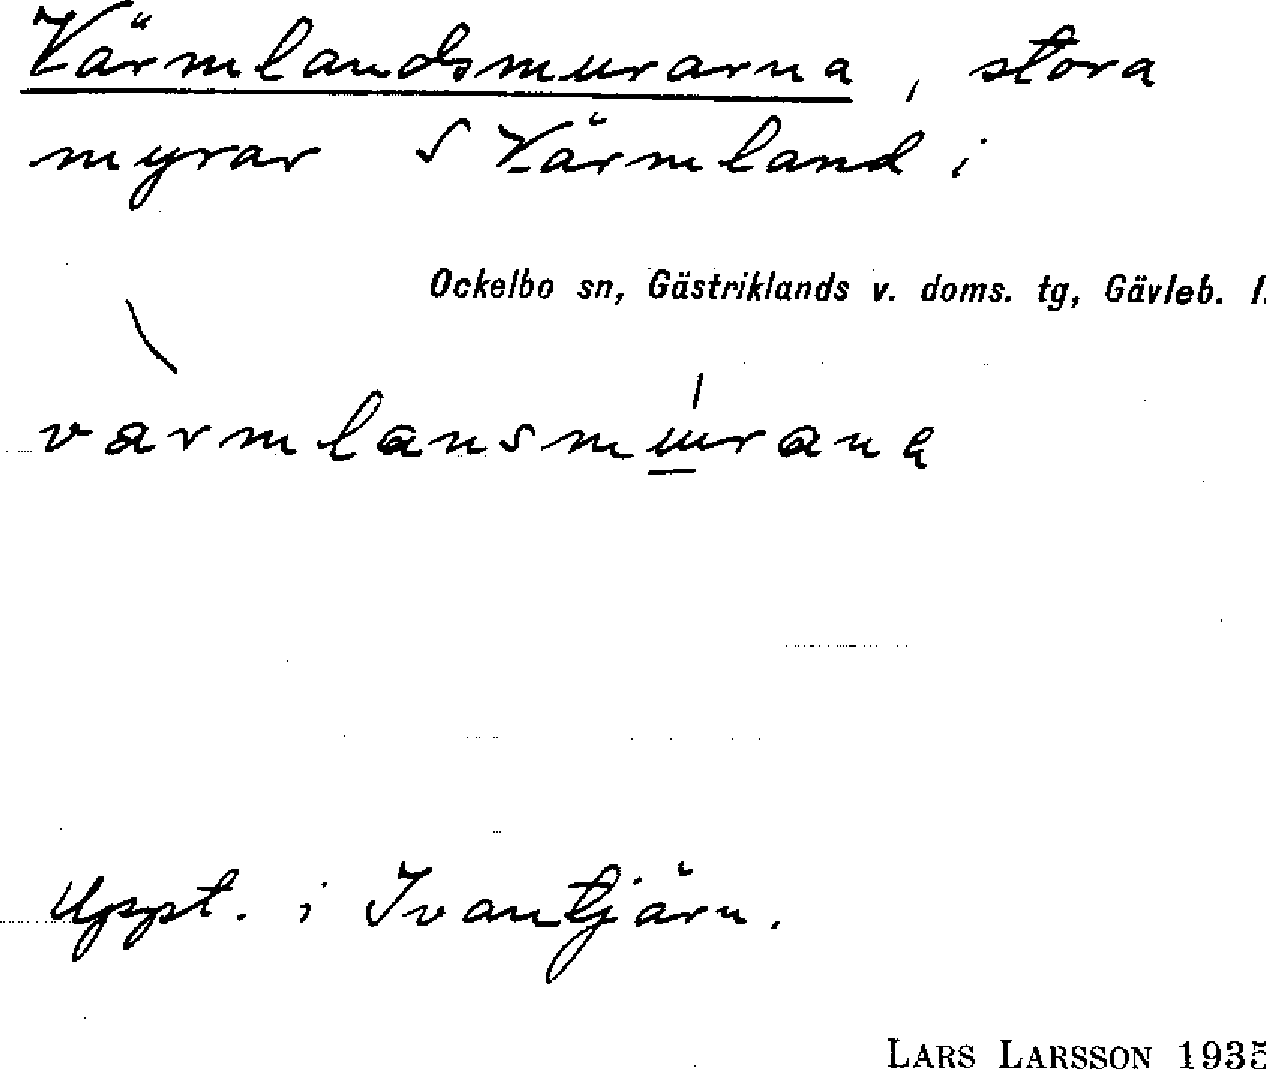 Värmlandsmurarna, stora
myrar S Värmland i
Ockelbo sn, Gästriklands v. doms. tg, Gävleb. l.
varmlansmurana
Uppt. i Ivantjärn.
LARS LARSSON 1935